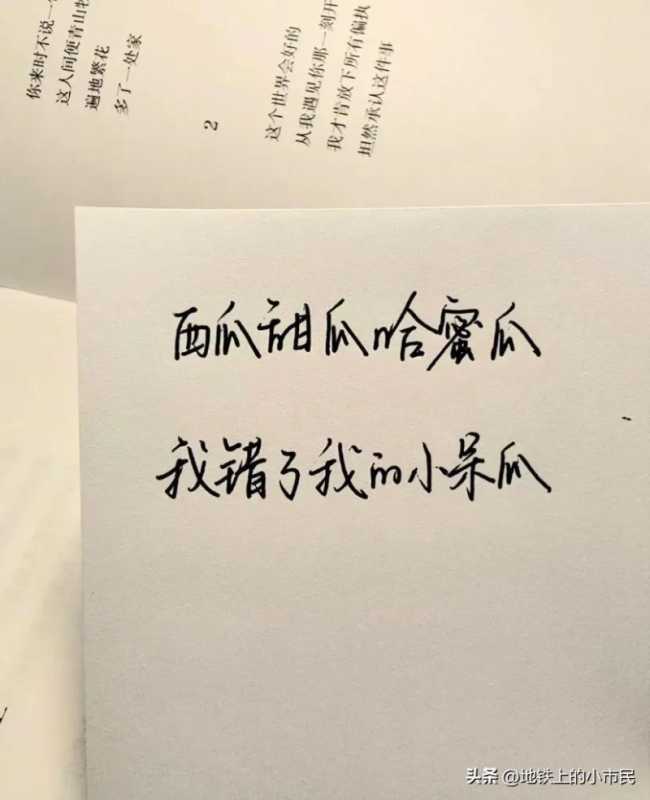 你来时不说一
这人间便青山
遍地繁花
多了一处家
2
这个世界会好的
从我遇见你那一刻开
我才肯放下所有偏执
坦然承认这件事
西瓜甜瓜哈蜜瓜
我错了我的小呆瓜
头条 @地铁上的小市民